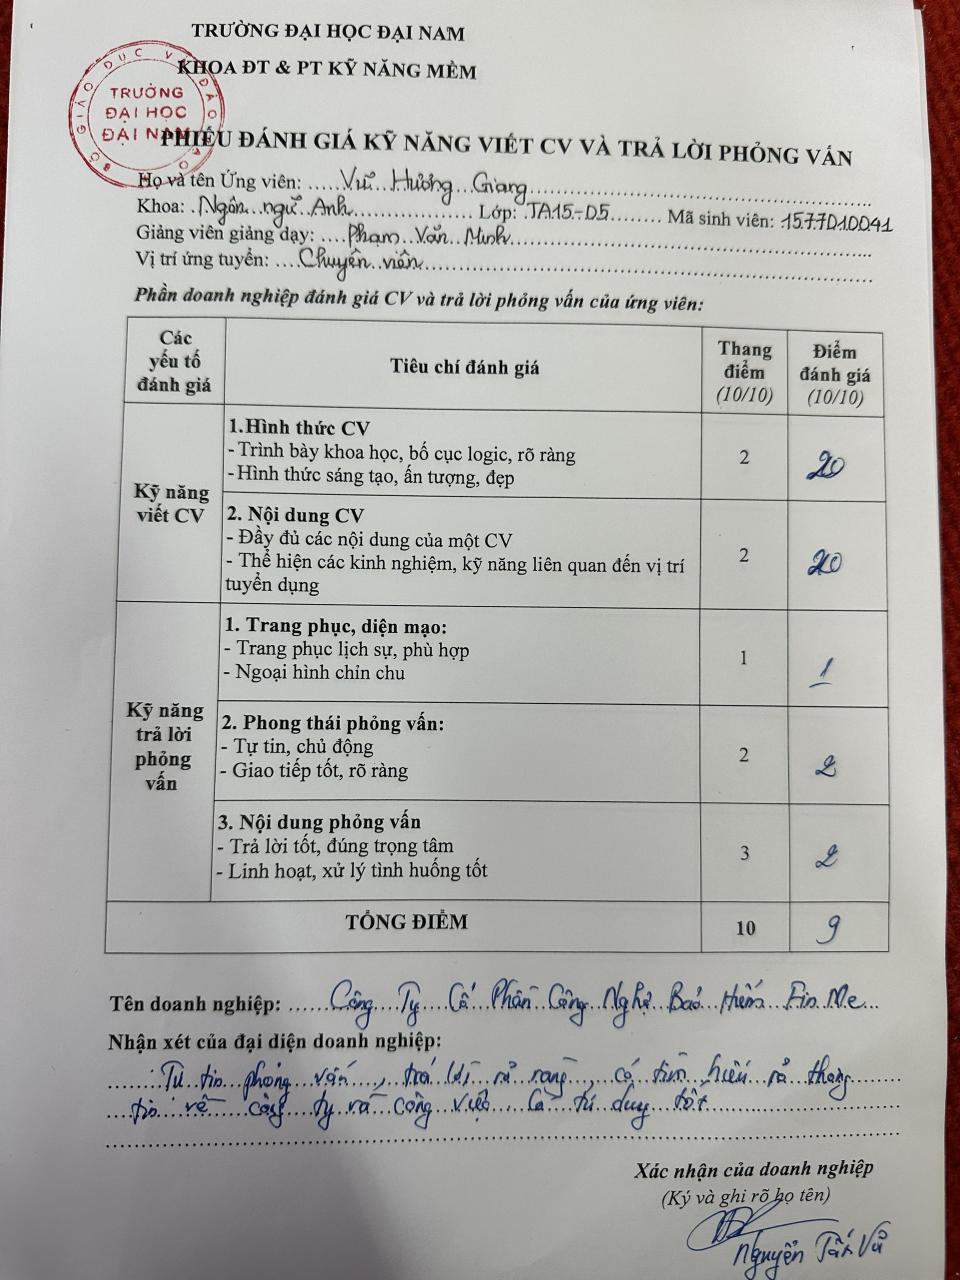 TRƯỜNG ĐẠI HỌC ĐẠI NAM
KHOA ĐT & PT KỸ NĂNG MỀM
BỘ GIÁO DỤC VÀ ĐÀO TẠO
TRƯỜNG
ĐẠI HỌC
ĐẠI NAM
PHIẾU ĐÁNH GIÁ KỸ NĂNG VIẾT CV VÀ TRẢ LỜI PHỎNG VẤN
Họ và tên Ứng viên: Vũ Hương Giang
Khoa: Ngôn ngữ Anh Lớp: TA15-05 Mã sinh viên: 1577010041
Giảng viên giảng dạy: Phạm Văn Minh
Vị trí ứng tuyển: Chuyên viên
Phần doanh nghiệp đánh giá CV và trả lời phỏng vấn của ứng viên:
Các yếu tố đánh giá
Tiêu chí đánh giá
Thang điểm (10/10)
Điểm đánh giá (10/10)
Kỹ năng viết CV
1.Hình thức CV
-Trình bày khoa học, bố cục logic, rõ ràng
-Hình thức sáng tạo, ấn tượng, đẹp
2
20
2. Nội dung CV
- Đầy đủ các nội dung của một CV
- Thể hiện các kinh nghiệm, kỹ năng liên quan đến vị trí
tuyển dụng
2
20
Kỹ năng trả lời phỏng vấn
1. Trang phục, diện mạo:
- Trang phục lịch sự, phù hợp
- Ngoại hình chỉn chu
1
1
2. Phong thái phỏng vấn:
- Tự tin, chủ động
- Giao tiếp tốt, rõ ràng
2
2
3. Nội dung phỏng vấn
- Trả lời tốt, đúng trọng tâm
- Linh hoạt, xử lý tình huống tốt
3
2
TỔNG ĐIỂM
10
9
Tên doanh nghiệp: Công Ty Cổ Phần Công Nghệ Bảo Hiểm Fin Me
Nhận xét của đại diện doanh nghiệp:
Tự tin phỏng vấn, trả lời rõ ràng, có tìm hiểu rõ thông
tin về công ty và công việc. Có tư duy tốt
Xác nhận của doanh nghiệp
(Ký và ghi rõ họ tên)
Nguyễn Tấn Vũ